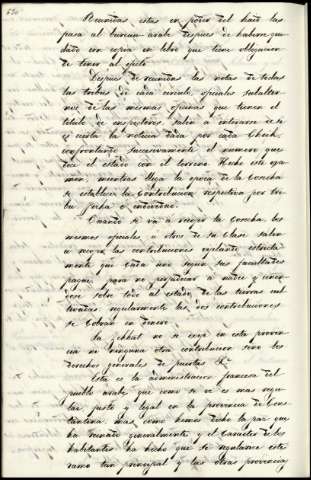 Reunidas estas en poder del kaid las
pasa al bureau arabe despues de haberse que
dado con copia en libro que tiene obligacion
de tener al efecto.
Despues de reunidas las notas de todas
las tribus de cada circulo, oficiales subalter
nos de las mismas oficinas que tienen el
titulo de inspectores salen a enterarse de si
es cierta la noticia dada por cada Cheik,
confrontando sucesivamente el numero que
dice el estado con el terreno. Hecho este exa
men, mientras llega la epoca de la Cosecha
se establece la Contribucion respectiva por tri
bu, fecha e individuo.
Cuando se va a recoger la Cosecha los
mismos oficiales u otros de su clase salen
a recoger las contribuciones vigilando estricta
mente que cada uno segun sus facultades
pague, para no perjudicar a nadie y cinen
dose sobre todo al estado de las tierras cul
tivadas; regularmente las dos contribuciones
se cobran en dinero.
La Zekkat no se exije en esta provin
cia ni ninguna otra contribucion sino los
derechos generales de puertas &a.
Esta es la administracion francesa del
pueblo arabe que como se ve es mas regu
lar justa y legal en la provincia de Cons
tantina mas como hemos dicho la paz que
ha reinado generalmente y el caracter de los
habitantes ha hecho que se regularice este
ramo tan principal y las otras provincias